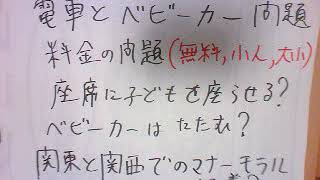 電車とベビーカー問題
料金の問題(無料,小人,大小)
座席に子どもを座らせる?
ベビーカーはたたむ?
関東と関西でのマナーモラル